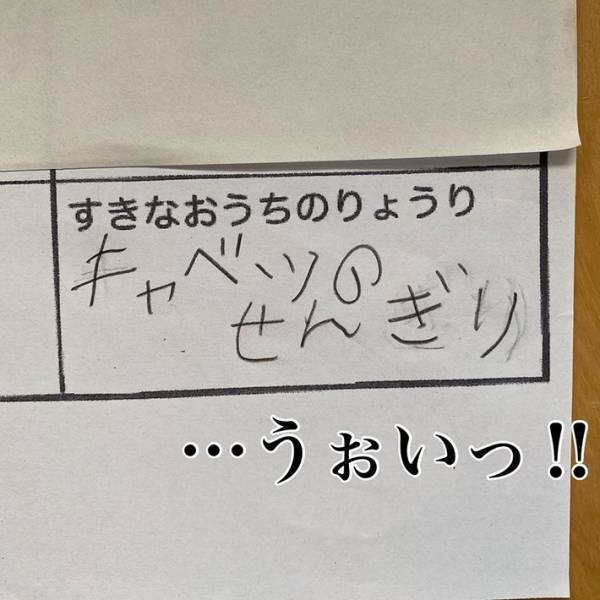 すきなおうちのりょうり
キャベツの
せんぎり
…うぉいっ!!